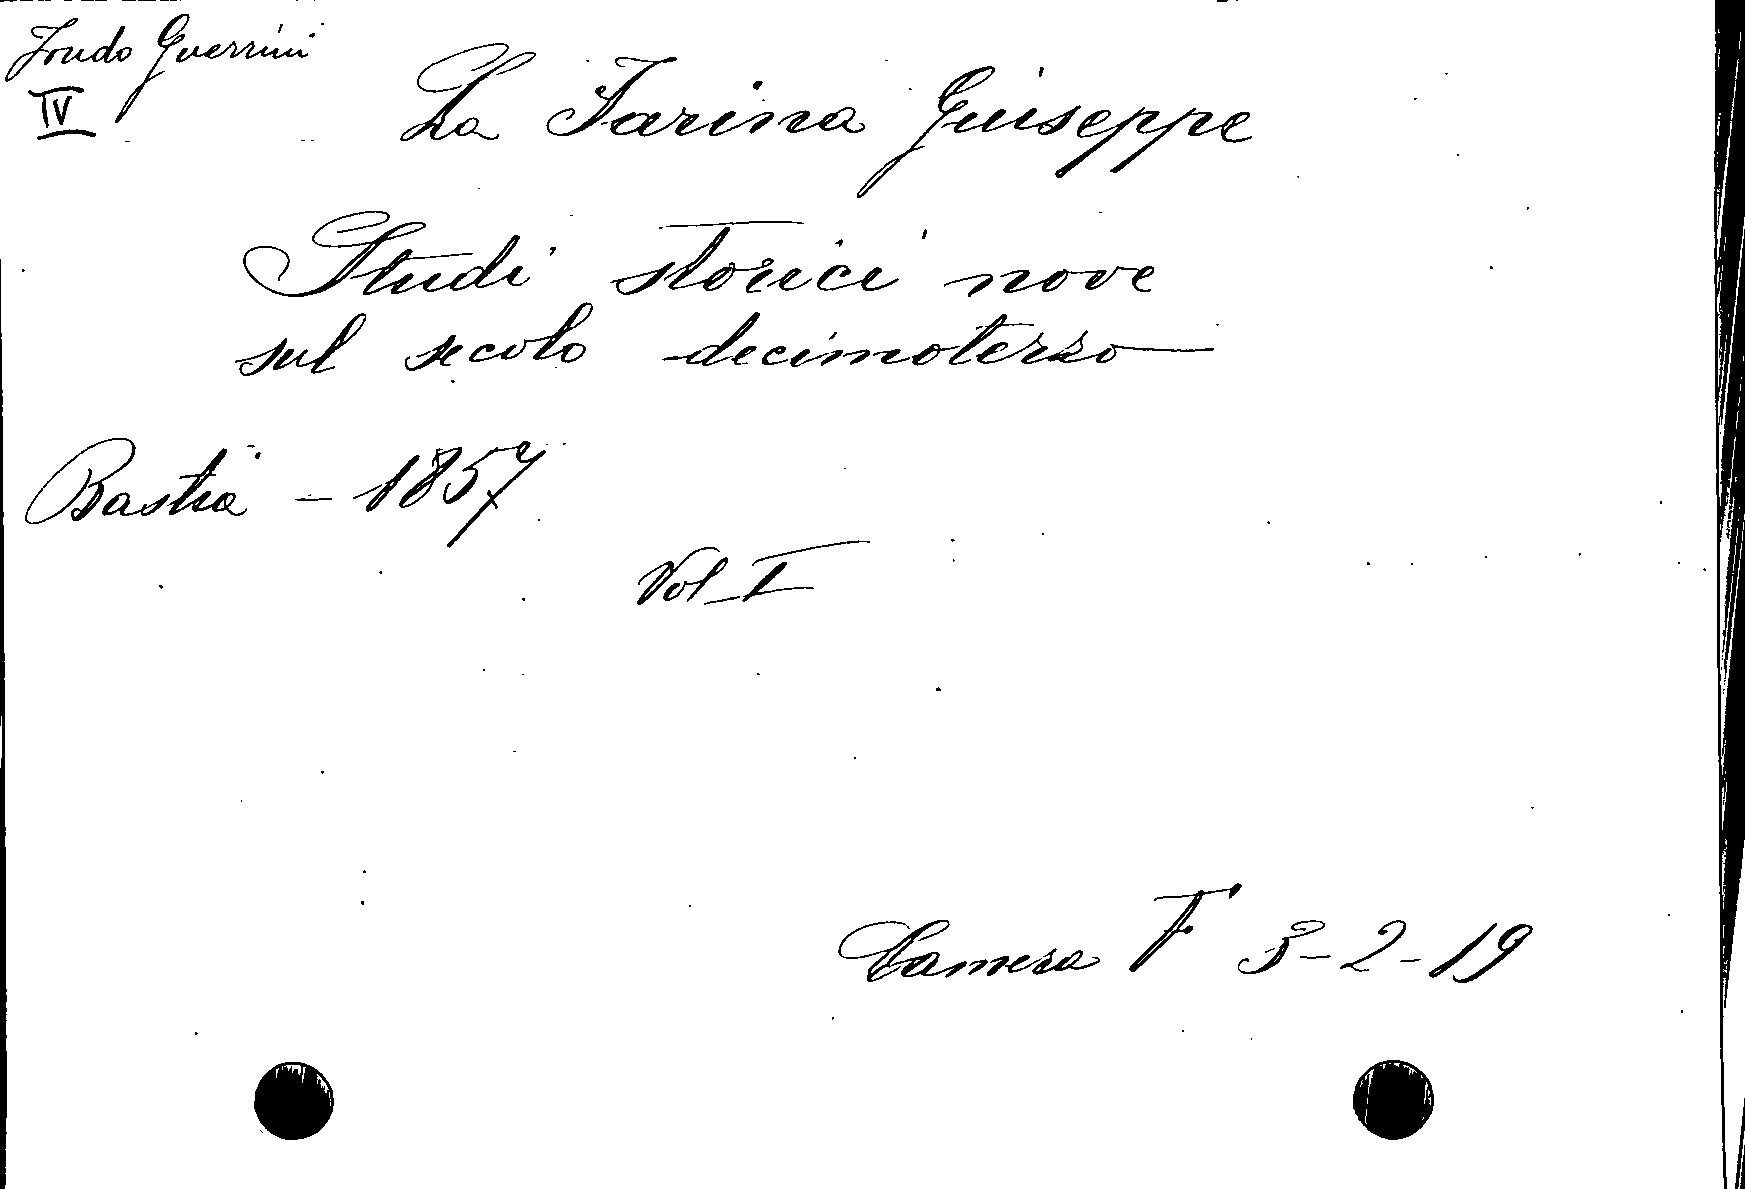 Fondo Guerrini
IV
La Farina Giuseppe
Studi storici nove
sul secolo decimoterzo
Bastia - 1857
Vol I
Camera F 3-2-19